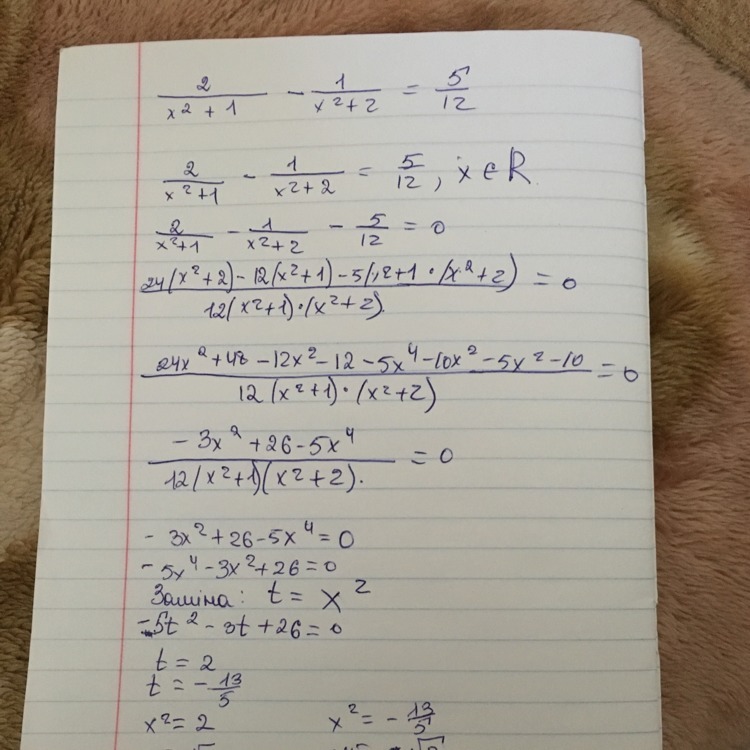 2/(x²+1) - 1/(x²+2) = 5/12
2/(x²+1) - 1/(x²+2) = 5/12, x ∈ R.
2/(x²+1) - 1/(x²+2) - 5/12 = 0
(24(x²+2) - 12(x²+1) - 5(x²+1 · (x²+2))/(12(x²+1)·(x²+2)) = 0
(24x²+48 - 12x² - 12 - 5x⁴ - 10x² - 5x² - 10)/(12(x²+1)·(x²+2)) = 0
(- 3x² + 26 - 5x⁴)/(12(x²+1)(x²+2)). = 0
- 3x² + 26 - 5x⁴ = 0
- 5x⁴ - 3x² + 26 = 0
Заміна: t = x²
-5t² - 3t + 26 = 0
t = 2
t = - 13/5
x² = 2 x² = - 13/5